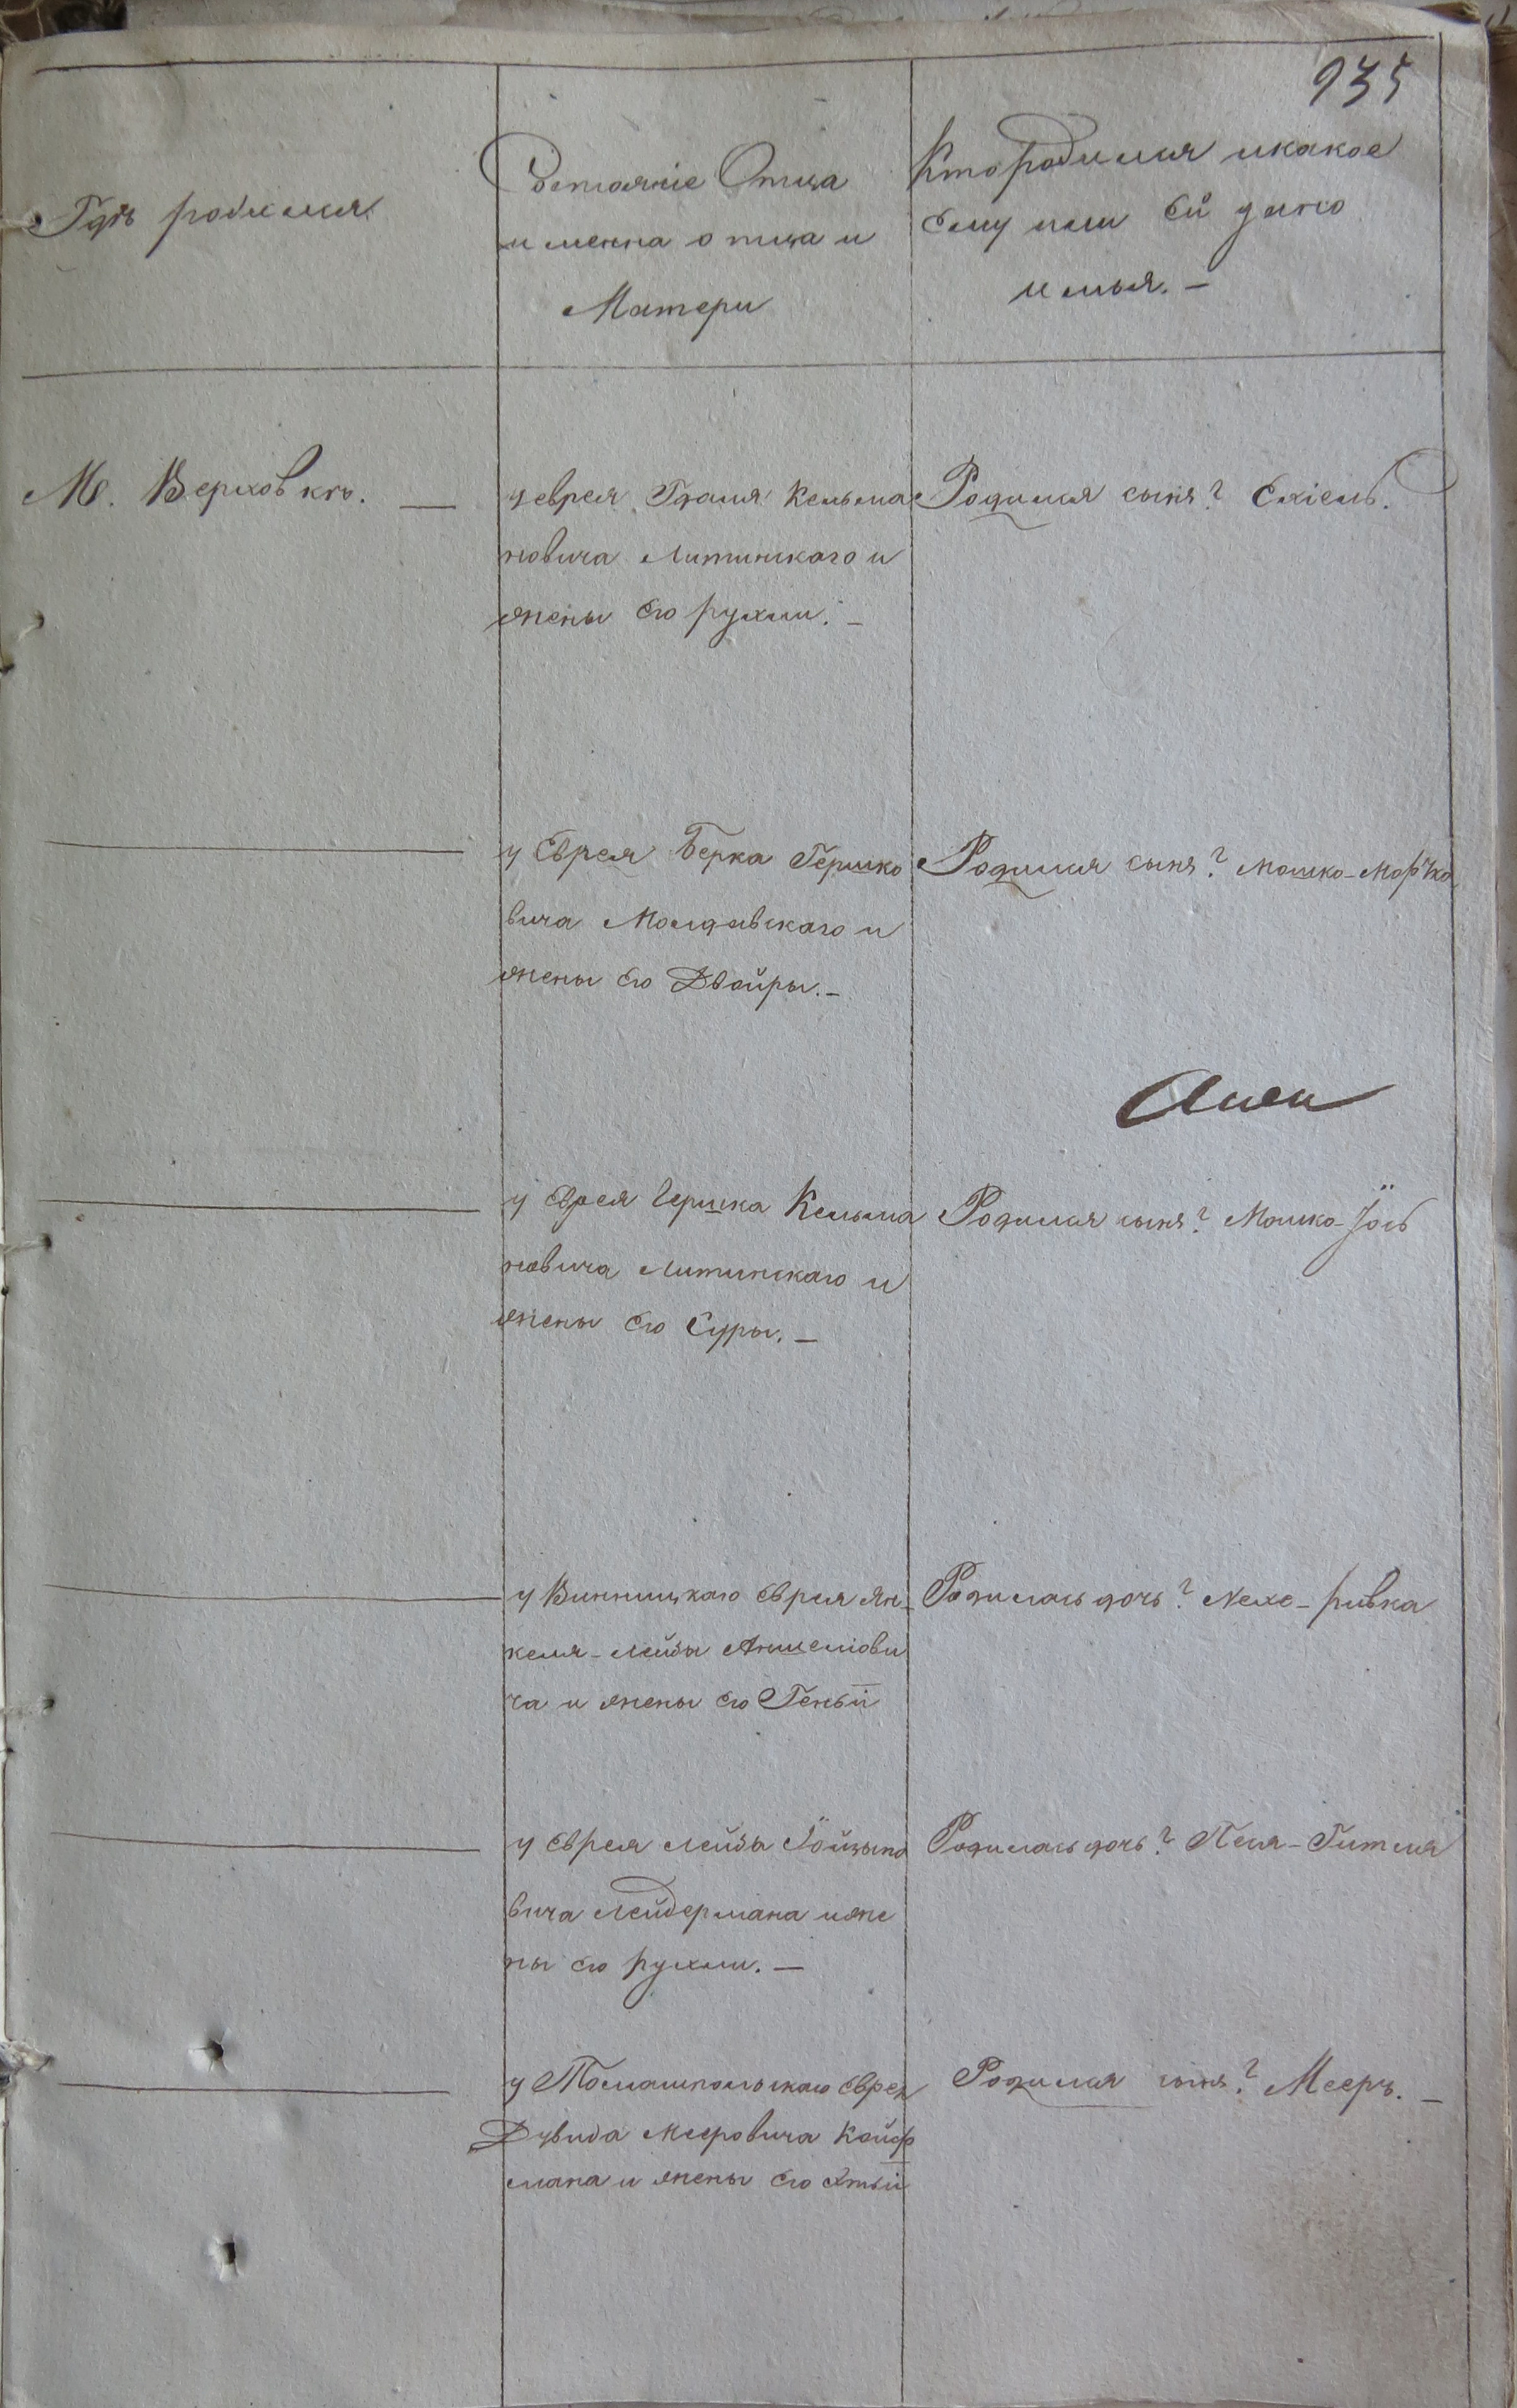 935
Гдѣ родился.
Состояніе Отца
и менна отца и
Матери
Кто родился и какое
Ему или Ей дано
имья. –
М. Верховкѣ. —
у еврея Гдаля Кельма
новича Литинскаго и
жены Его рухли. –
Родился сынъ? Ехіель.
у Еврея Берка Гершко
вича Молдавскаго и
жены Его Двойры. –
Родился сынъ? Мошко-Мортко
у Еврея Гершка Кельма
новича Литинскаго и
жены Его Суры. –
Родился сынъ? Мошко-Іось
у Винницкаго Еврея Ян-
келя-лейбы Аншелови
ча и жены Его Геньи
Родилась дочь? Нехе-ривка
у Еврея лейбы Іойны
вича лейдермана и же
ны Его рухли. –
Родилась дочь? Песя-Гитля
у Томашпольскаго Еврея
Дувида Мееровича Койф
мана и жены Его Этьи
Родился сынъ? Мееръ. –